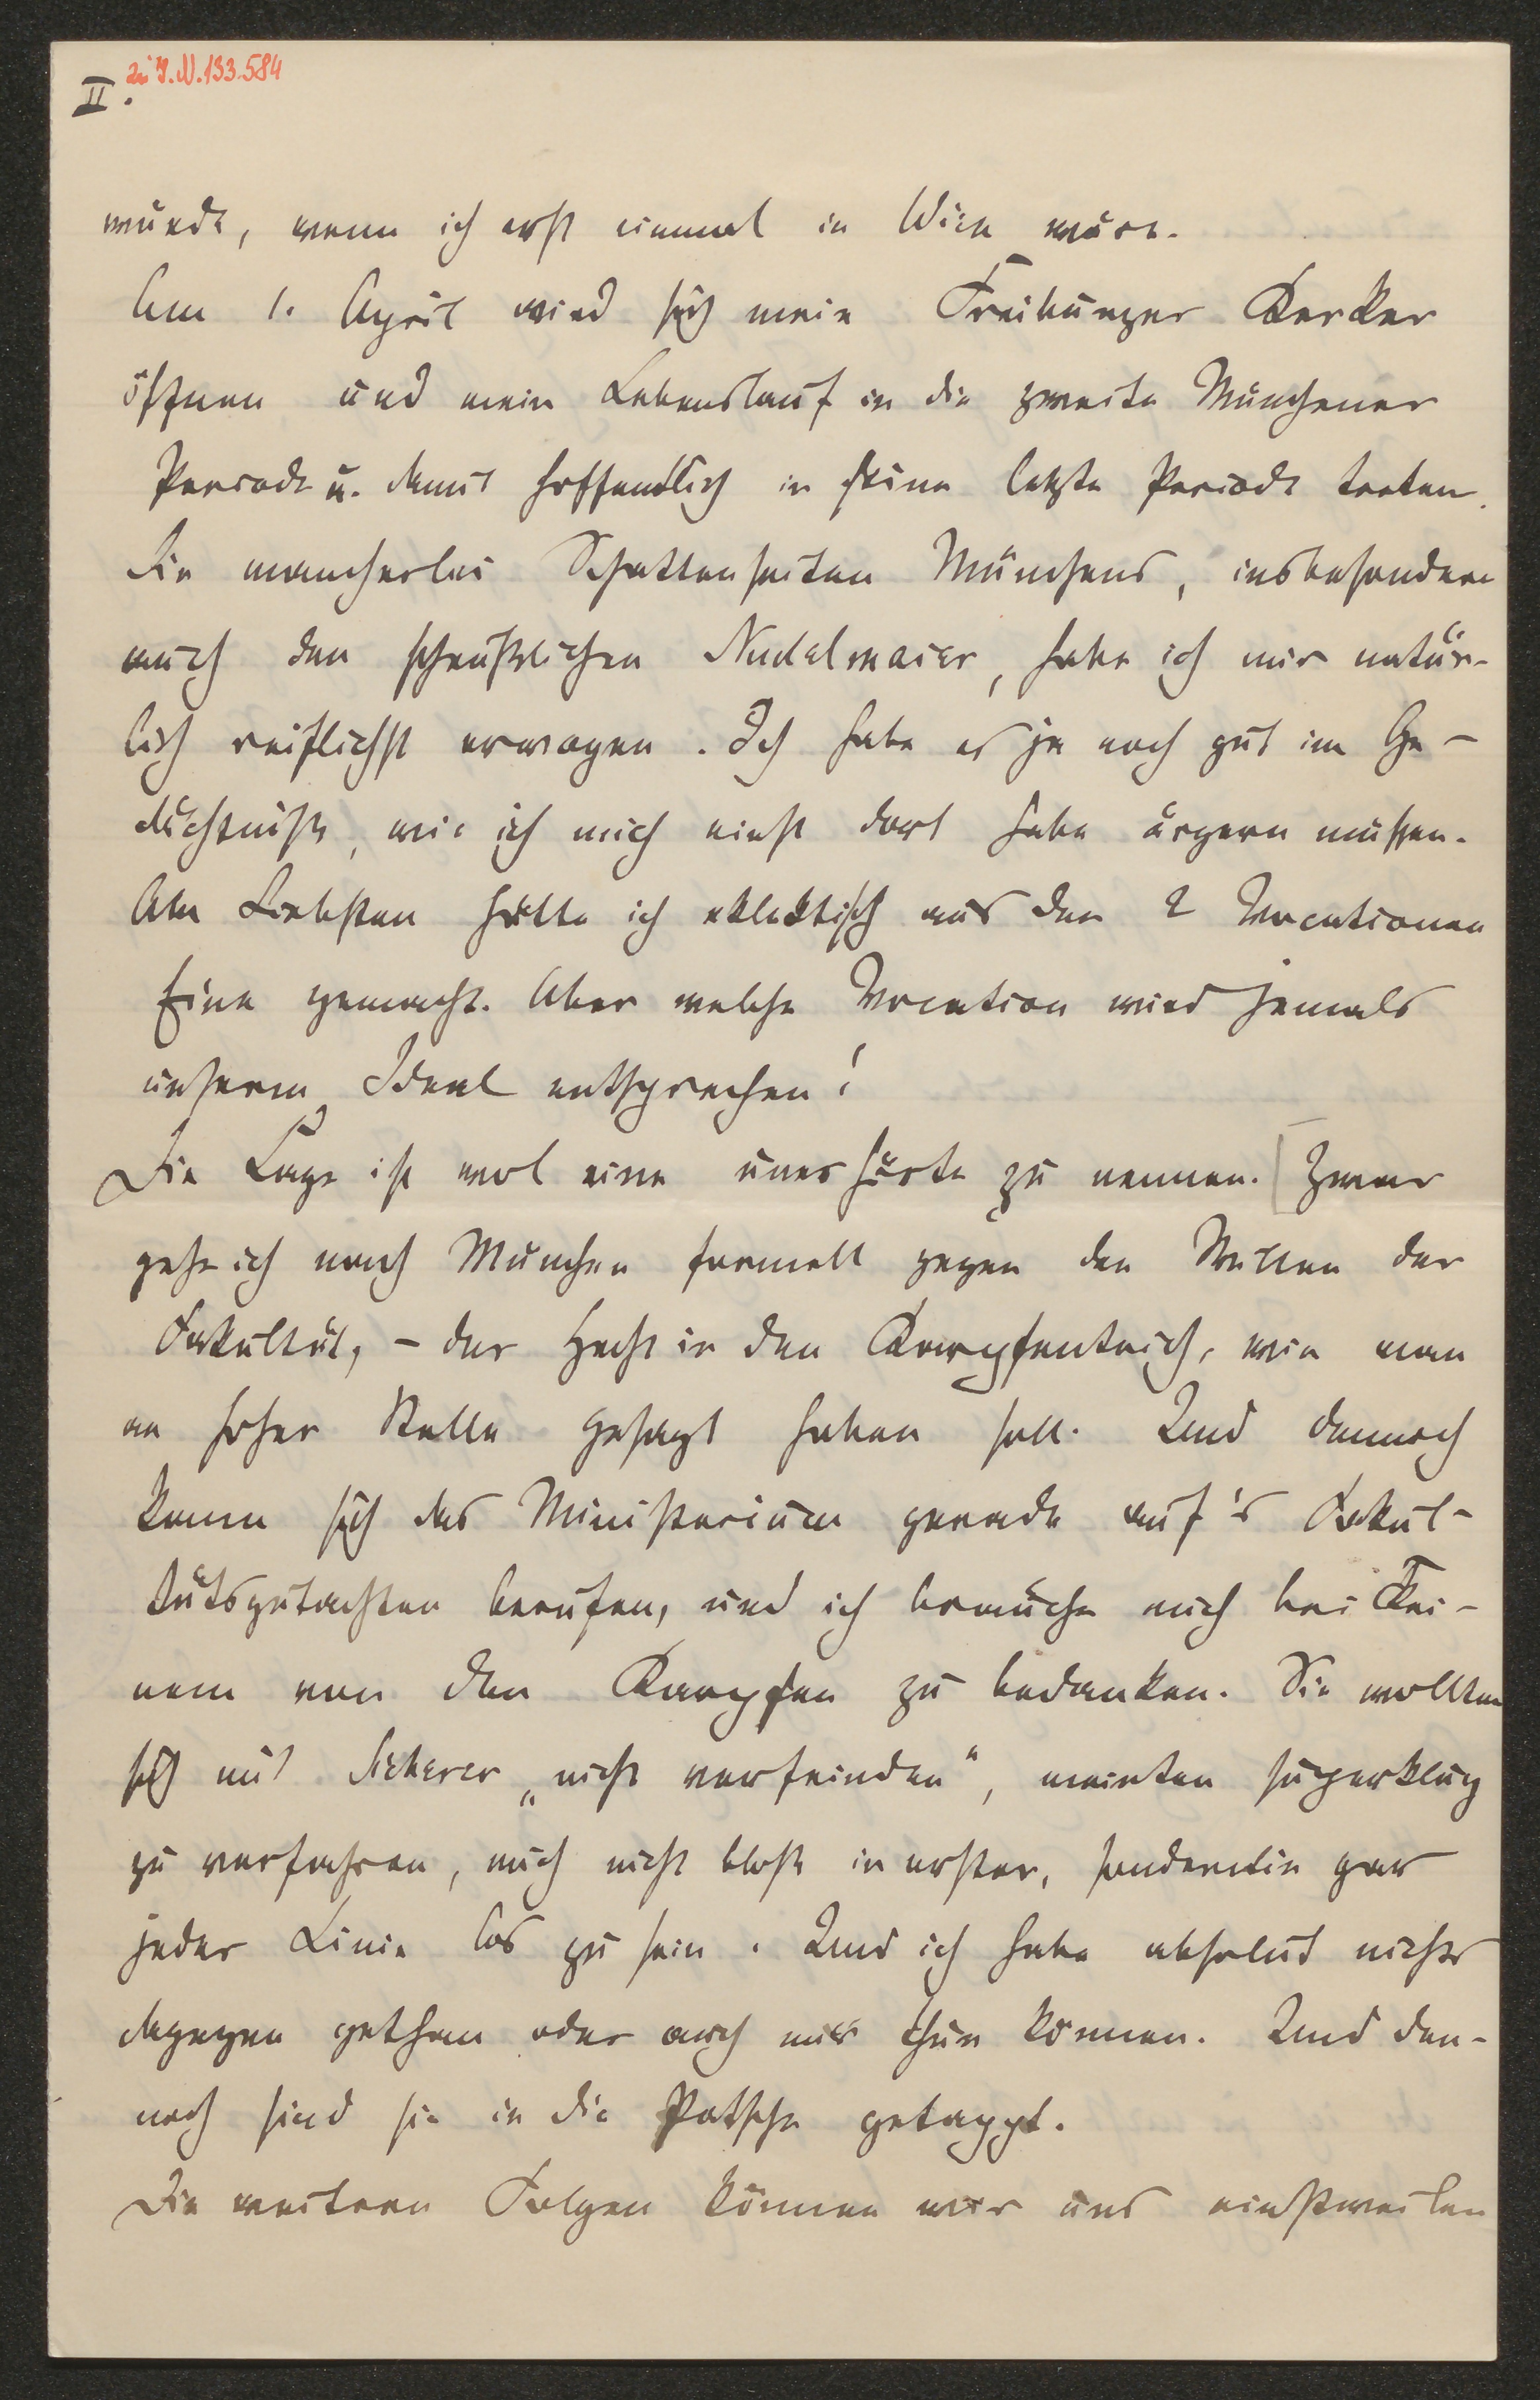 zu J.N.133.584
II.
würde, wenn ich erst einmal in Wien wäre.
Am 1. April wird sich mein Freiburger Kerker
öffnen und mein Lebenslauf in die zweite Münchener
Periode u. damit hoffentlich in seine letzte Periode treten.
Die mancherlei Schattenseiten Münchens, insbesondere
auch den scheußlichen Nudelmaier, habe ich mir natür-
lich reiflichst erwogen. Ich habe es ja noch gut im Ge-
dächtniß, wie ich mich einst dort habe ärgern müssen.
Am Liebsten hätte ich eklektisch aus den 2 Vocationen
Eine gemacht. Aber welche Vocation wird jemals
unserm Ideal entsprechen!
Die Lage ist wol eine unerhörte zu nennen. [Zwar
gehe ich nach München formell gegen den Willen der
Fakultät, - der Hecht in den Karpfenteich, wie man
an hoher Stelle gesagt haben soll. Und dennoch
kann sich das Ministerium gerade auf's Fakul-
tätsgutachten berufen, und ich brauche mich bei Kei-
nem von den Karpfen zu bedanken. Sie wollten
sich mit Scherer „nicht verfeinden", meinten superklug
zu verfahren, mich nicht bloß in erster, sondern in gar
jeder Linie los zu sein. Und ich habe absolut nichts
dagegen gethan oder auch nur thun können. Und den-
noch sind sie in die Patsche getappt.
Die weitern Folgen können wir uns einstweilen